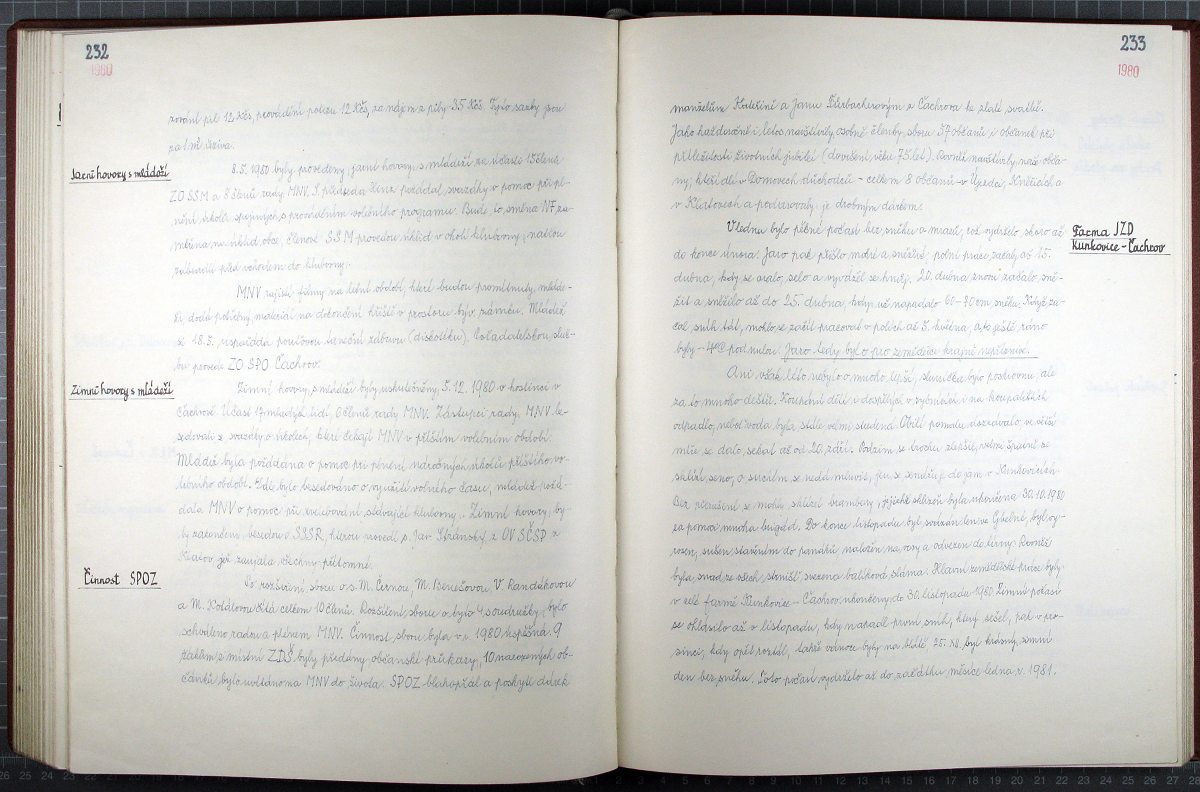 232
1980
zování pil 12 Kčs, provádění pořezu 12 Kčs, za nájem z pily 35 Kčs. Tyto sazby jsou
za 1 m³ dříva.
Jarní hovory s mládeží
8.5. 1980 byly provedeny jarní hovory s mládeží za účasti 15 členů
ZO SSM a 8 členů rady MNV. S. předseda požádal svazáky o pomoc při pl-
nění úkolů, spojených s prováděním volebního programu. Bude to směna NF za-
měřena na úklid obce, členové SSM provedou úklid v okolí klubovny, natřou
před vchodem do klubovny.
MNV zajistí filmy na letní období, které budou promítnuty mláde-
ži, dodá potřebný materiál na dokončení hřiště v prostoru býv. zámku. Mládež
si 18.5. uspořádá pouťovou taneční zábavu (diskotéku). Pořadatelskou služ-
bu provede ZO SPO Čachrov.
Zimní hovory s mládeží
Zimní hovory s mládeží byly uskutečněny 5.12. 1980 v hostinci v
Čachrově. Účast 17 mladých lidí, 6 členů rady MNV. Zástupci rady MNV be-
sedovali s svazáky o úkolech, které čekají MNV v příštím volebním období.
Mládež byla požádána o pomoc při plnění náročných úkolů příštího vo-
lebního období. Též bylo besedováno o využití volného času, mládež požá-
dala MNV o pomoc při stávající klubovny. Zimní hovory by-
ly zakončeny besedou o SSSR, kterou provedl s. Jar. Stránský z OV SČSP z
Klatov, jež zaujala všechny přítomné.
Činnost SPOZ
Po rozšíření sboru o s. M. Černou, M. Benešovou, V. Randákovou
a M. Kolářovou čítá celkem 10 členů. Rozšíření sboru o tyto 4 soudružky bylo
schváleno radou a plénem MNV. Činnost sboru byla v r. 1980 úspěšná. 9
žákům z místní ZDŠ byly předány občanské průkazy, 10 narozených ob-
čánků bylo uvítáno na MNV do života. SPOZ blahopřál a poskytl dárek
233
1980
manželům Kateřině a Janu z Čachrova ke zlaté svatbě.
Jako každoročně i letos navštívily osobně členky sboru 57 občanů i občanek při
příležitosti životních jubileí (dovršení věku 75 let). Rovněž navštívily naše obča-
ny, kteří dlí v Domovech důchodců - celkem 8 občanů - v Újezdci, Kněžicích a
v Klatovech a podarovaly je drobným dárkem.
Farma JZD
Kunkovice - Čachrov
V lednu bylo pěkné počasí bez sněhu a mrazů, což vydrželo skoro až
do konce února. Jaro pak přišlo mokré a sněžné, polní práce začaly až 15.
dubna, kdy se oralo, selo a vyvážel se hnůj. 20. dubna znovu začalo sně-
žit a sněžilo až do 25. dubna, kdy už napadalo 60-70 cm sněhu. Když za-
čal sníh tát, mohlo se začít pracovat v polích až 5. května, a to ještě ráno
byly -4°C pod nulou. Jaro tedy bylo pro zemědělce krajně nepříznivé.
Ani však léto nebylo o mnoho lepší, sluníčka bylo poskrovnu, ale
za to mnoho deště. Koupání dětí i dospělých v rybnících i na koupalištích
odpadlo, neboť voda byla stále velmi studená. Obilí pomalu dozrávalo, ve větší
míře se dalo sekat až od 20. září. Počasím se trochu zlepšilo, velmi špatně se
sklízí seno, o suchém se nedá mluvit, jen se sendžuje do jam v Kunkovicích.
Bez přerušení se mohly sklízet brambory, jejichž sklizeň byla ukončena 30.10.1980
za pomoci mnoha brigád. Do konce listopadu byl svázán len ve Chvalšě, byl vy-
vezen, sušen stavěním do panáků naložen na vozy a odvezen do tírny. Rovněž
byla svezena ze všech strnišť svezena balíková sláma. Hlavní zemědělské práce byly
v celé farmě Kunkovice - Čachrov ukončeny do 30. listopadu 1980. Zimní počasí
se ohlásilo až v listopadu, kdy napadl první sníh, který sešel, pak v pro-
sinci, kdy opět roztál, takže vánoce byly na blátě. 25. XII. byl krásný, zimní
den bez sněhu. Toto počasí vydrželo až do začátku měsíce ledna r. 1981.